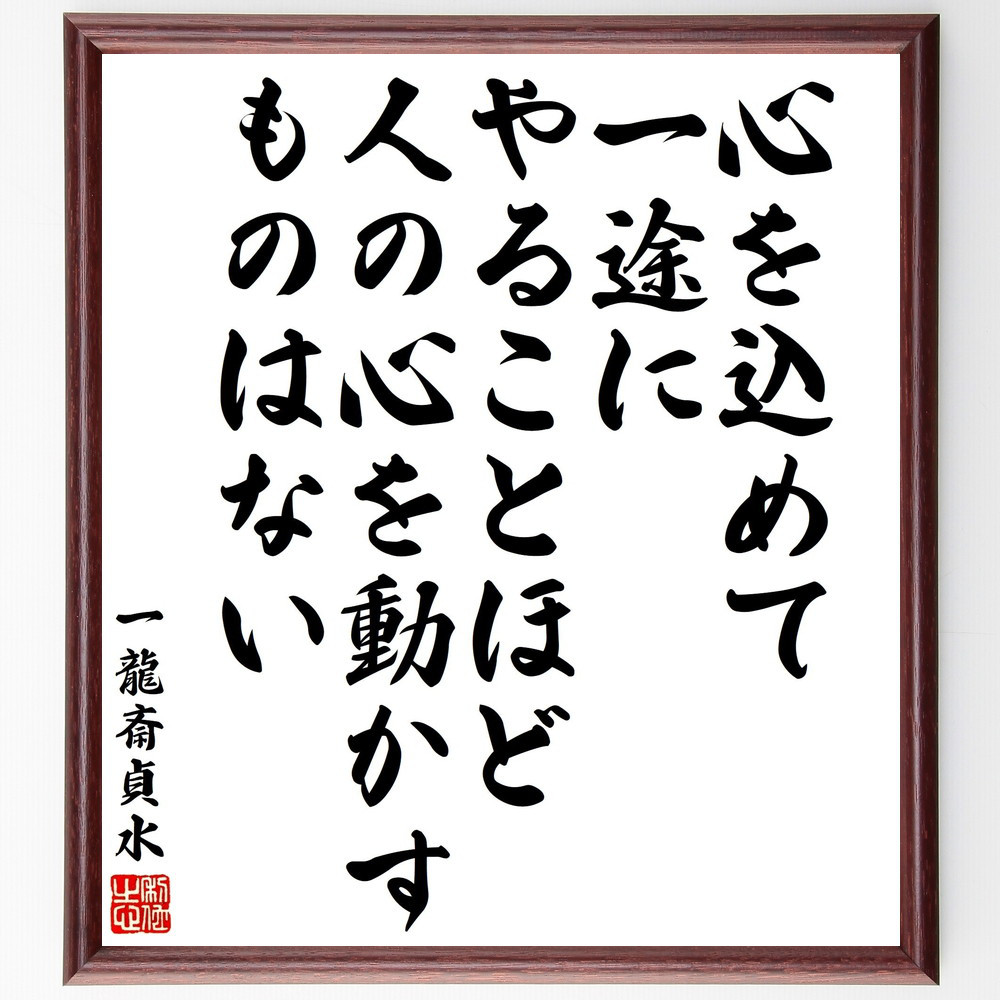 心を込めて
一途に
やることほど
人の心を動かす
ものはない
一龍斎貞水